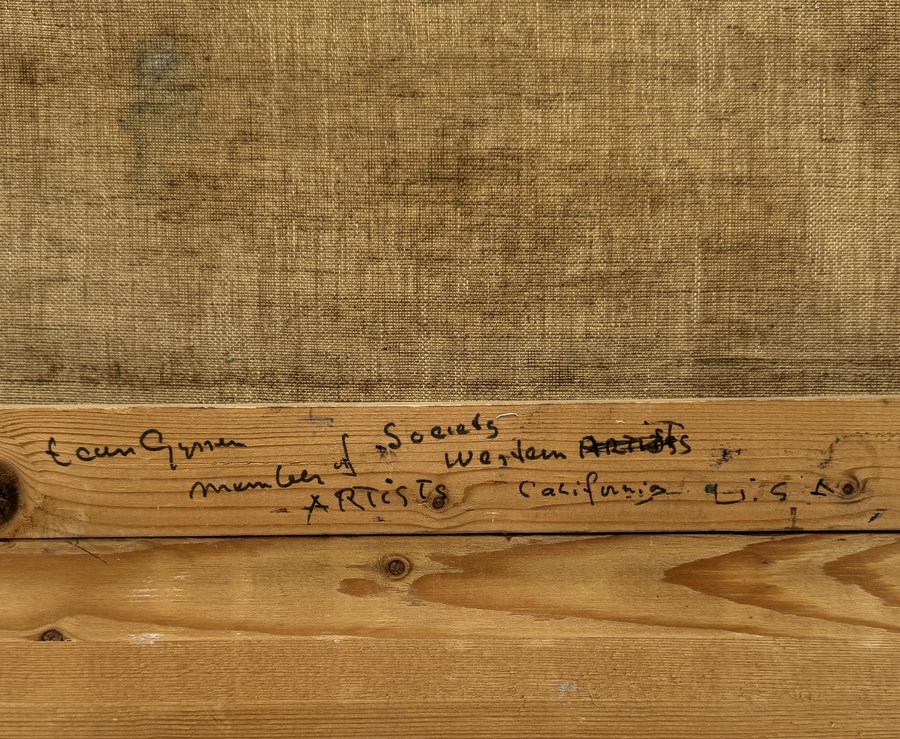 member of Society
Western Artists
ARTISTS California U.S.A